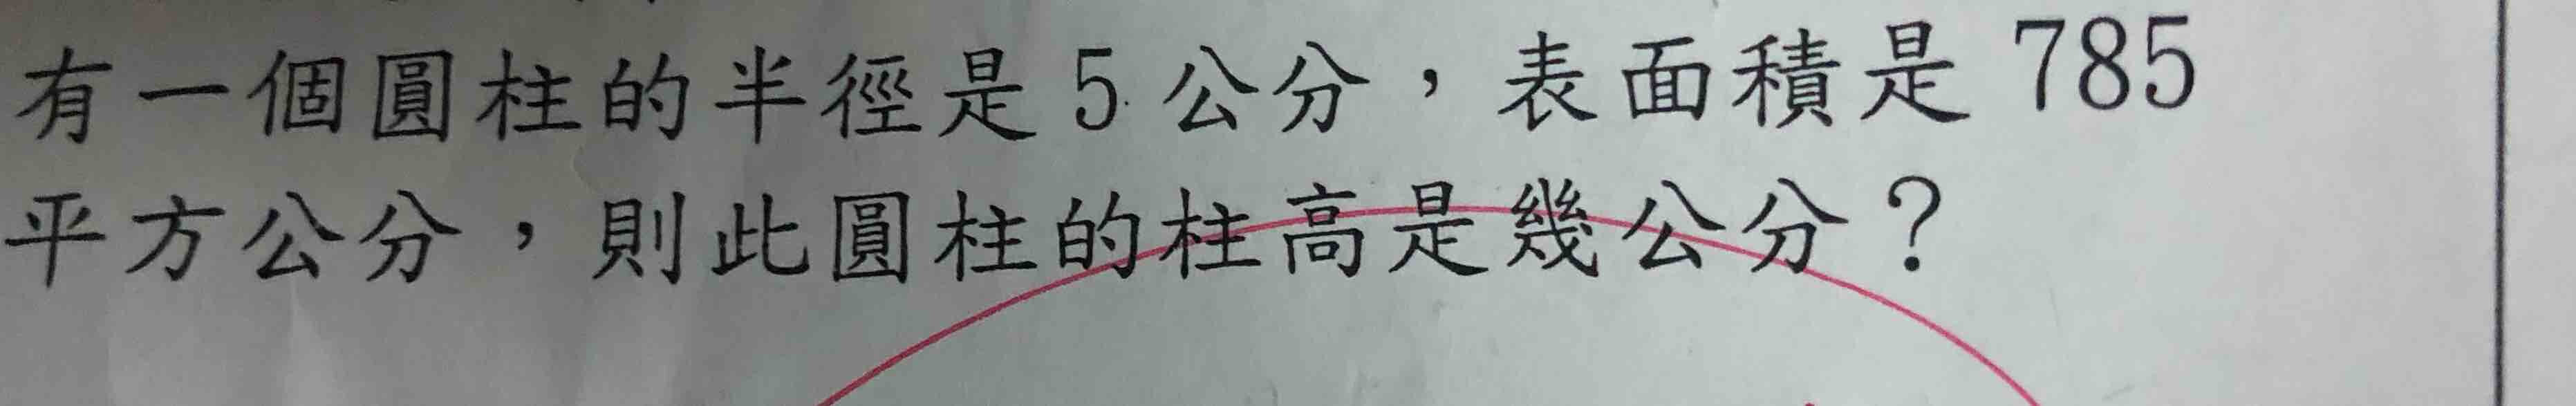 有一個圓柱的半徑是5公分，表面積是785
平方公分，則此圓柱的柱高是幾公分？